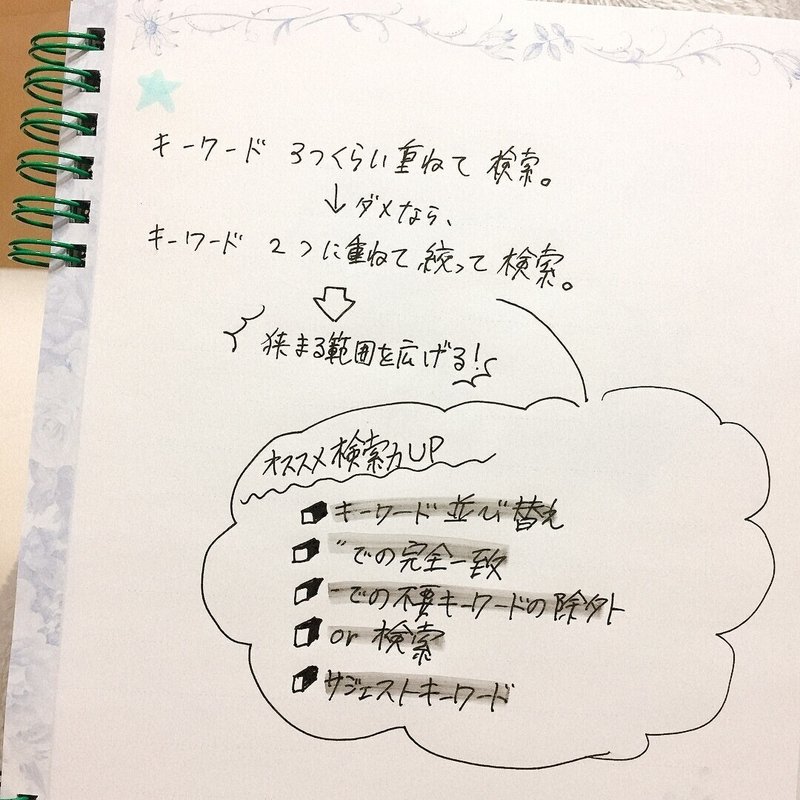 キーワード 3つくらい重ねて 検索。
↓ダメなら、
キーワード 2つに重ねて 絞って 検索。
狭まる範囲を広げる!
オススメ検索力UP
キーワード並び替え
"での完全一致
-での不要キーワードの除外
or 検索
サジェストキーワード